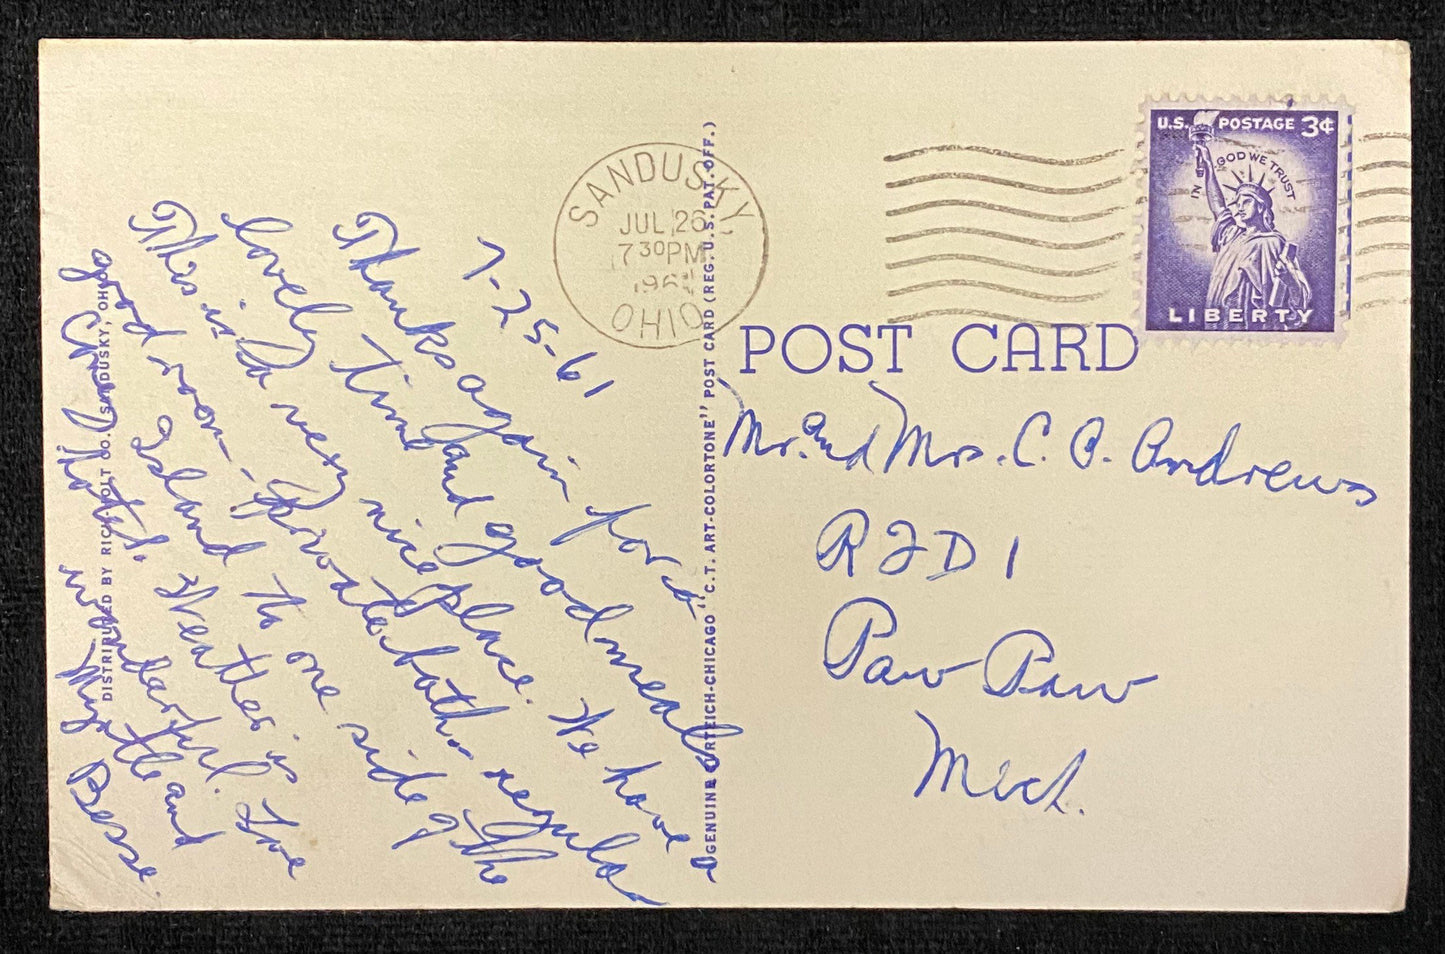 SANDUSKY
JUL 26
7 30 PM
1961
OHIO
U.S. POSTAGE 3¢
IN GOD WE TRUST
LIBERTY
POST CARD
7-25-61
Thanks again for a
lovely time and good meals.
This is a very nice place. We have a
good room - private bath - regular
Coney Island to one side of the
hotel. Weather is
wonderful. Love
Myrtle and
Besse.
Mr. and Mrs. C. A. Andrews
RFD 1
Paw Paw
Mich.
DISTRIBUTED BY CO. SANDUSKY, OHIO
GENUINE CURTEICH-CHICAGO "C.T. ART-COLORTONE" POST CARD (REG. U.S. PAT. OFF.)